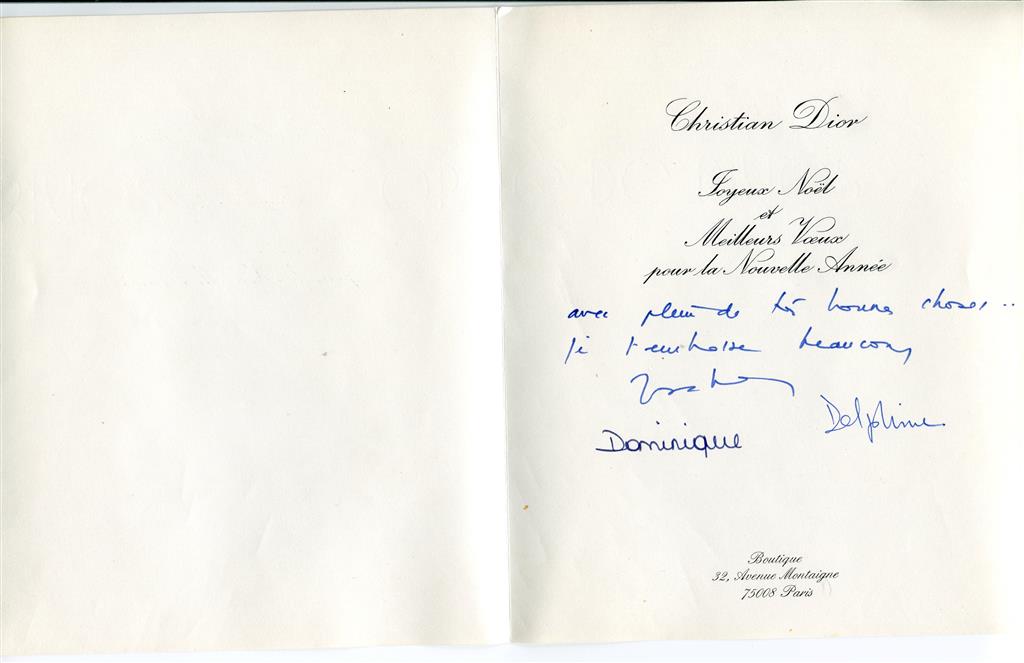 Christian Dior
Joyeux Noël
et
Meilleurs Vœux
pour la Nouvelle Année
avec plein de très bonnes choses..
je t'embrasse beaucoup
Delphine
Dominique
Boutique
32, Avenue Montaigne
75008 Paris